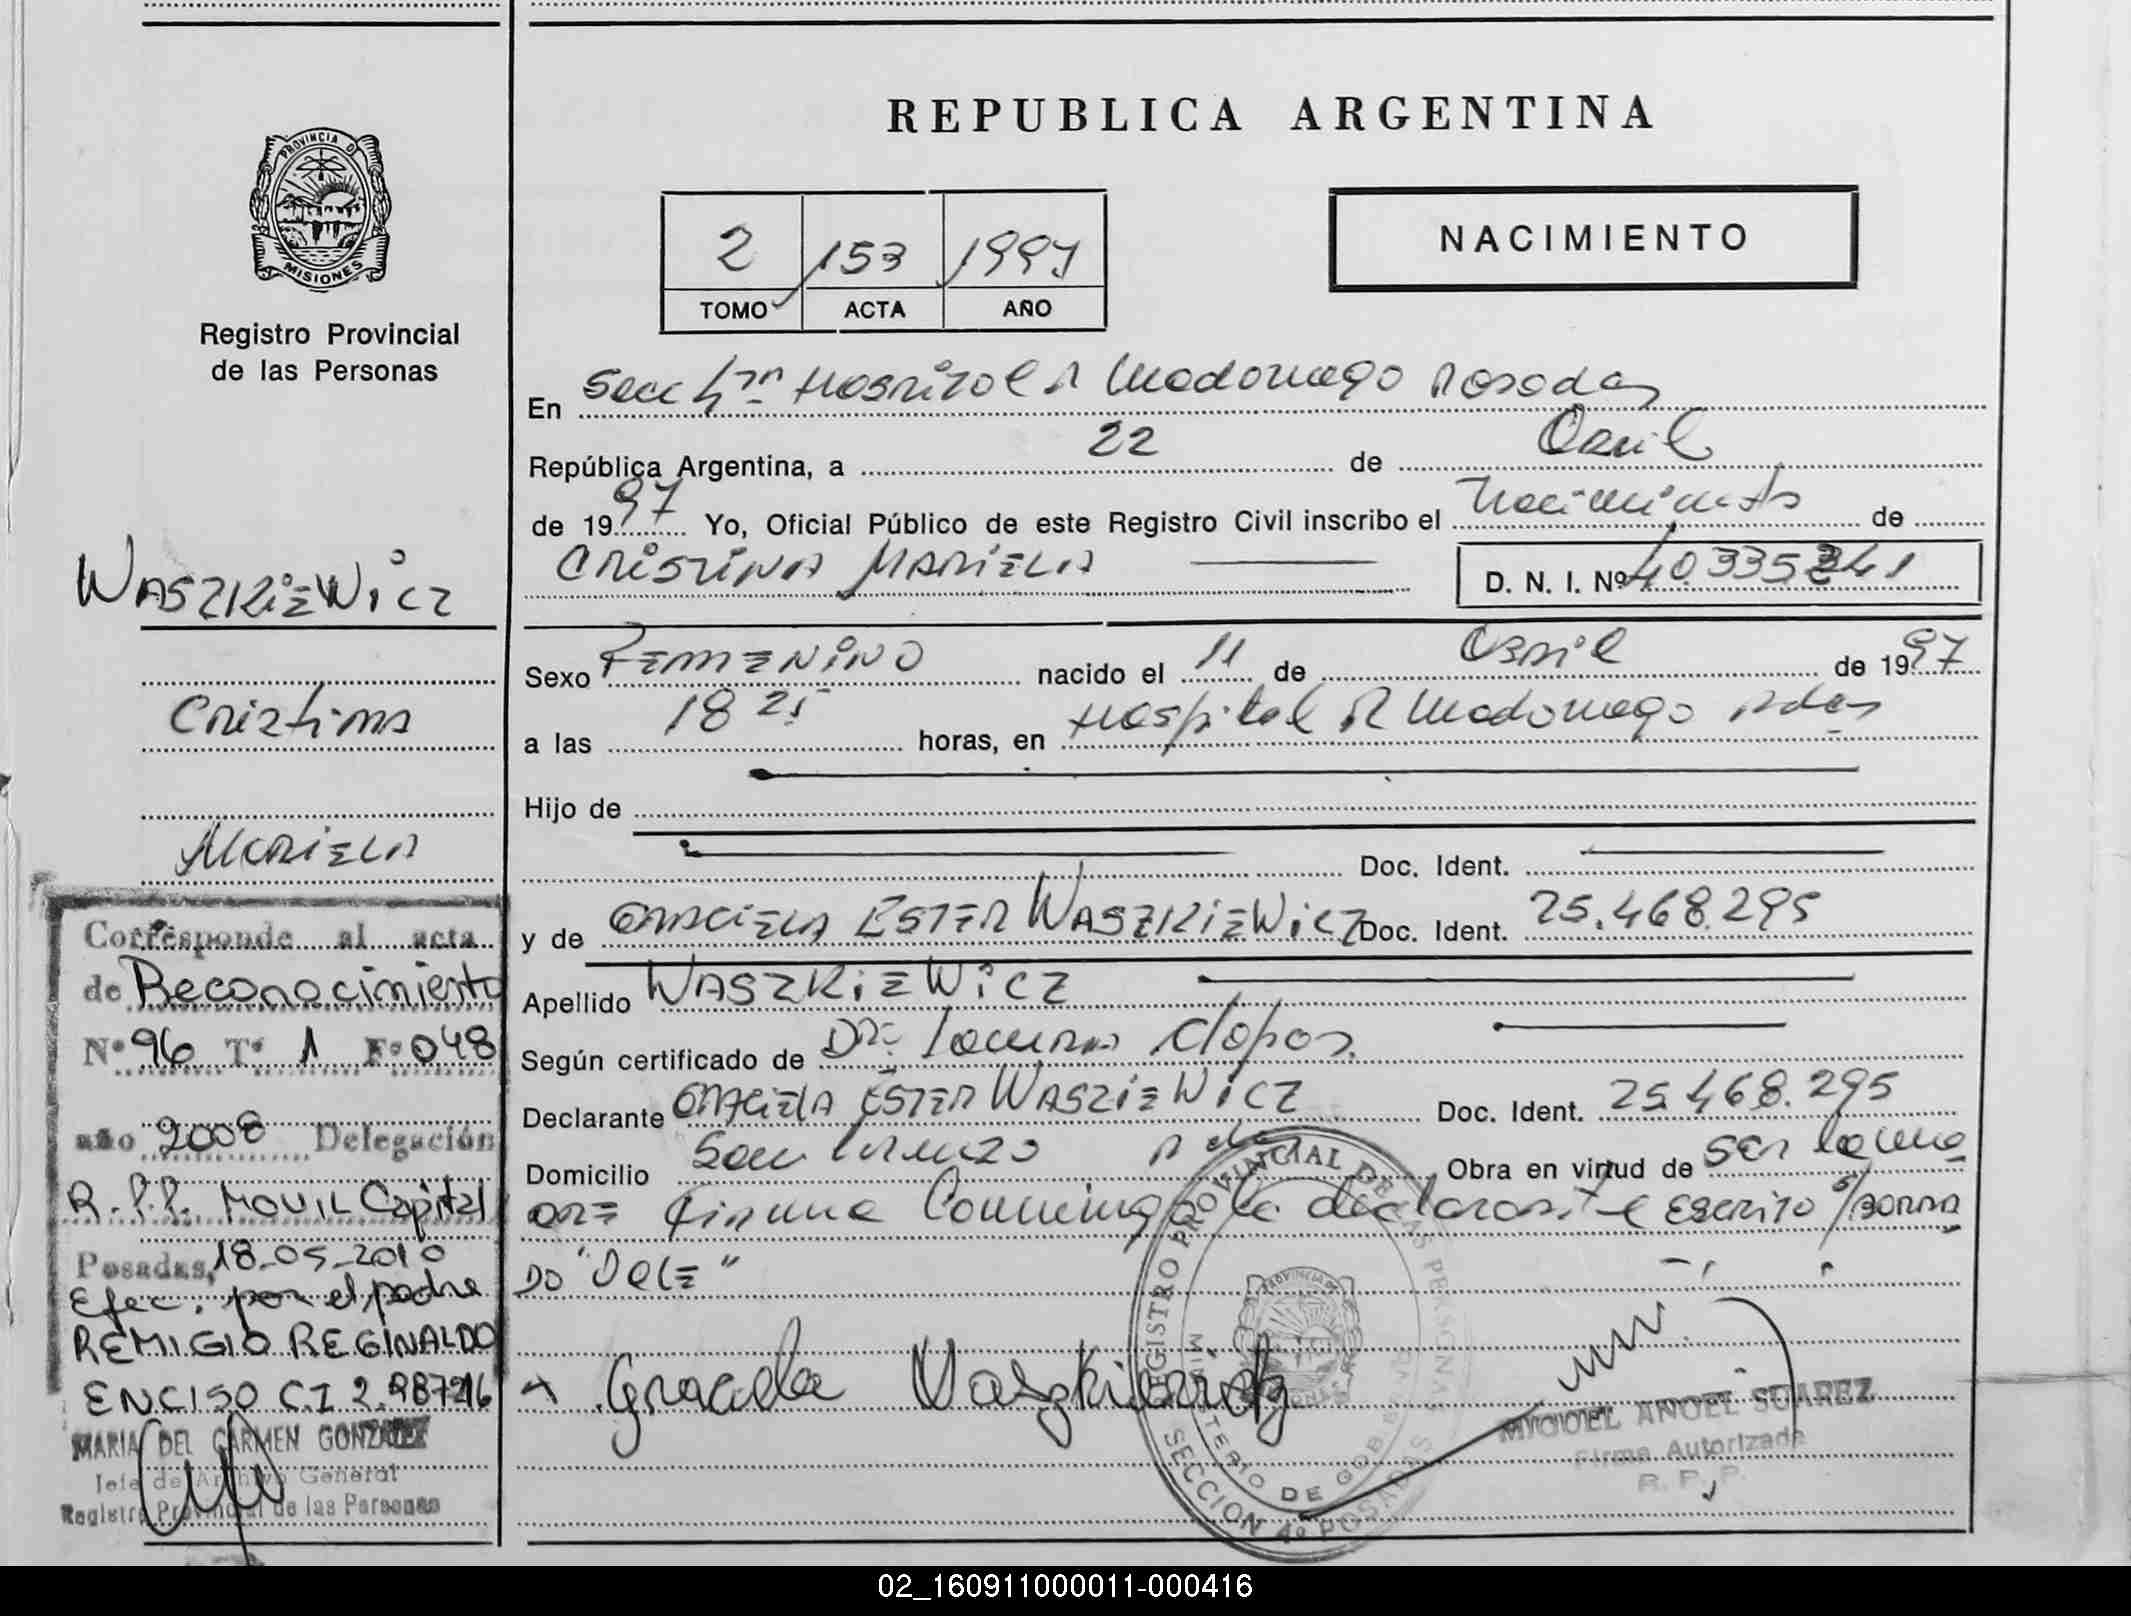 REPUBLICA ARGENTINA
PROVINCIA DE
MISIONES
Registro Provincial
de las Personas
2 153 1997
TOMO ACTA AÑO
NACIMIENTO
En Secc 4ta Hospital R Madariaga Posadas
República Argentina, a 22 de Abril
de 1997 Yo, Oficial Público de este Registro Civil inscribo el Nacimiento de
CRISTINA MARIELA D. N. I. Nº 40.335.241
Sexo FEMENINO nacido el 11 de Abril de 1997
a las 18 25 horas, en Hospital R Madariaga Pdas
Hijo de
Doc. Ident.
y de GRACIELA ESTER WASZKIEWICZ Doc. Ident. 25.468.295
Apellido WASZKIEWICZ
Según certificado de Dra.
Declarante GRACIELA ESTER WASZIEWICZ Doc. Ident. 25.468.295
Domicilio San Lorenzo Obra en virtud de ser la
firma conmigo la declarante ESCRITO S/BORRA
DO "VALE"
Graciela Waszkiewicz
REGISTRO PROVINCIAL DE LAS PERSONAS
MINISTERIO DE GOB
SECCION 4º POSADAS
MIGUEL ANGEL SUAREZ
Firma Autorizada
R. P. P.
WASZKIEWICZ
Cristina
MARIELA
Corresponde al acta
de Reconocimiento
Nº 96 Tº 1 Fº 048
año 2008 Delegación
R.P.P. MOVIL Capital
Posadas, 18-05-2010
Efec. por el padre
REMIGIO REGINALDO
ENCISO CI
MARIA DEL CARMEN GONZALEZ
Jefe de Archivo General
Registro Provincial de las Personas
02_160911000011-000416